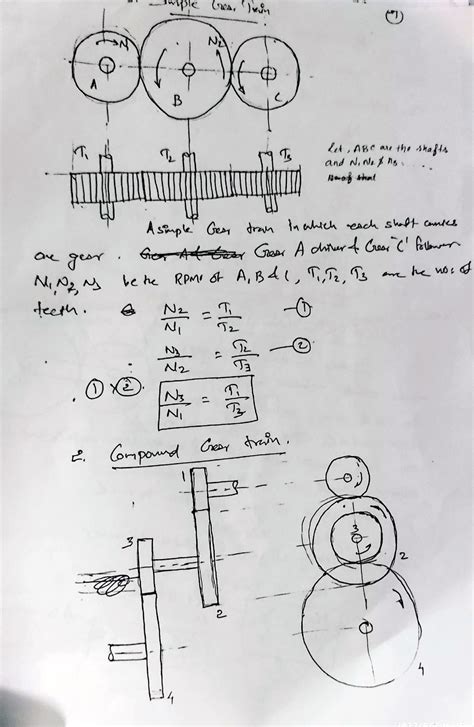 Simple Gear Train
①
N₁
N₂
A
B
C
T₁
T₂
T₃
Let, ABC are the shafts
and N₁ N₂ & N₃ ....
A simple Gear train in which each shaft carries
one gear. Gear A driver & Gear 'C' follower
N₁, N₂, N₃ be the RPM of A, B & C, T₁, T₂, T₃ are the nos of
teeth.
N₂/N₁ = T₁/T₂ —①
N₃/N₂ = T₂/T₃ —②
① × ②. N₃/N₁ = T₁/T₃
2. Compound Gear train.
1
3
3
2
2
4
4